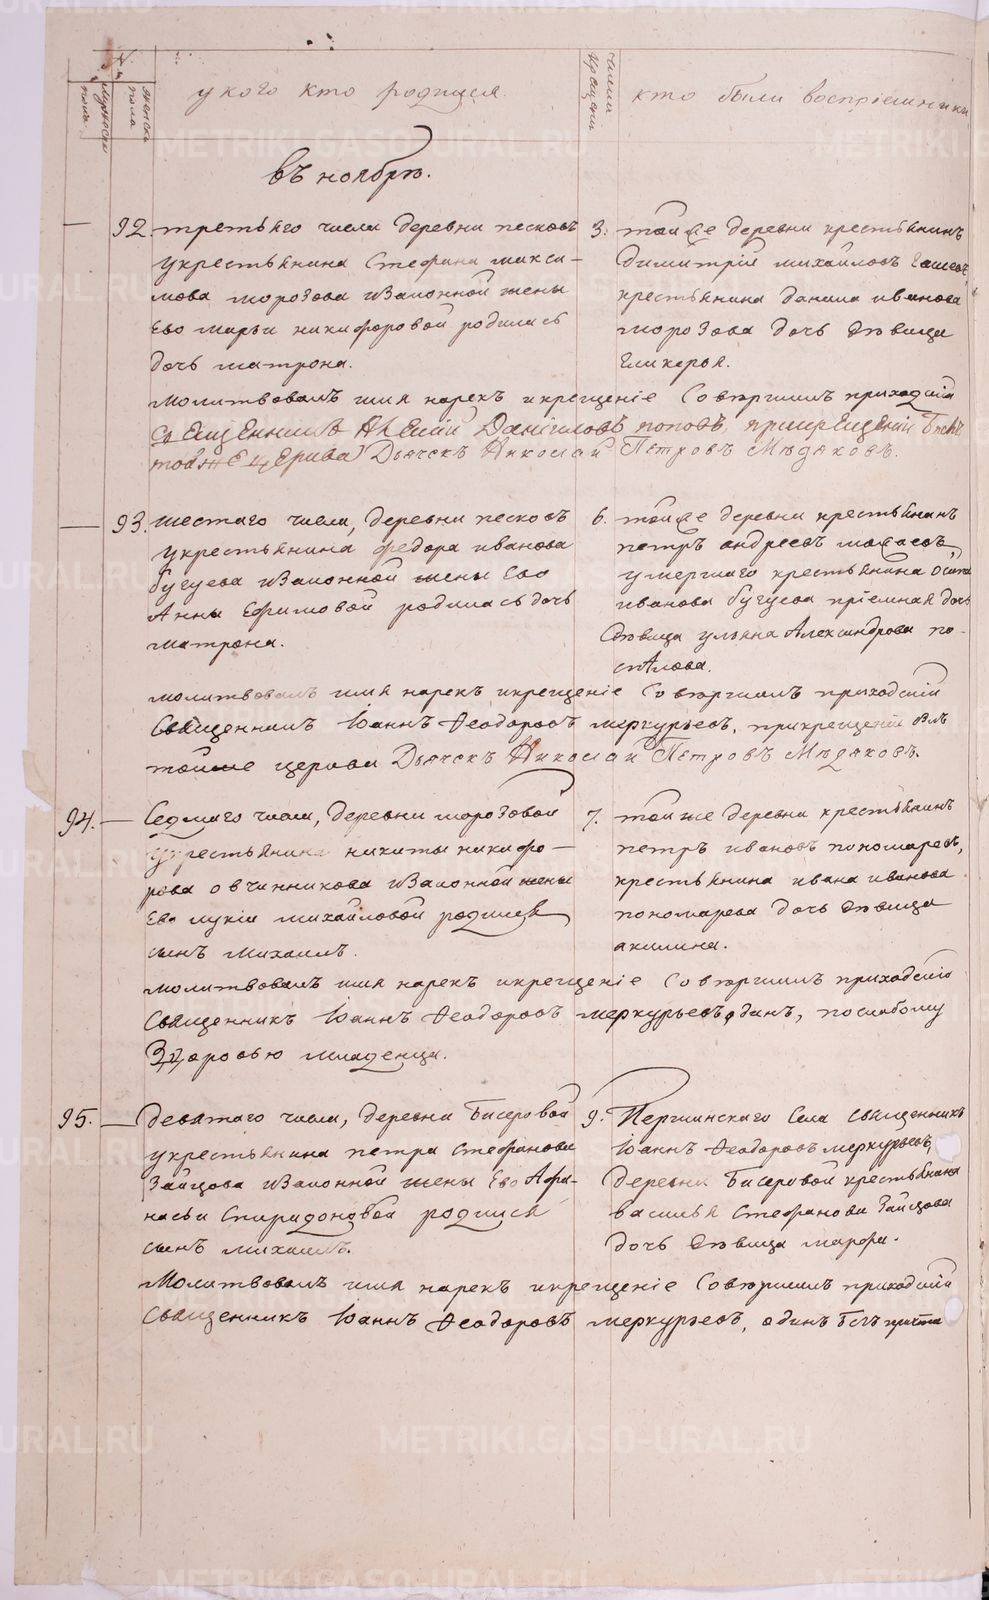 METRIKI.GASO-URAL.RU
№
мужеска пола
женска пола
у кого кто родился
числа крещенія
кто были воспріемники
въ ноябрѣ.
92. третьяго числа деревни песковъ
укрестьянина Стефана макси-
мова морозова изаконной жены
Ево марьи никифоровой родилась
дочь матрона.
3. тойже деревни крестьянинъ
димитрій михайловъ
крестьянина данила иванова
морозова дочь дѣвица
гликерья.
молитвовалъ имя нарекъ икрещеніе Совершилъ приходскій
Священникъ Алексій Даніиловъ поповъ, прикрещеніи былъ
тойже церкви Дьячекъ Николай Петровъ Мѣдяковъ.
93. шестаго числа, деревни песковъ
укрестьянина федора иванова
бугуева изаконной жены Ево
Анны Ефимовой родилась дочь
матрона.
6. тойже деревни крестьянинъ
петръ андреевъ
умершаго крестьянина осипа
иванова бугуева пріемная дочь
дѣвица ульяна Александрова по-
спѣлова.
молитвовалъ имя нарекъ икрещеніе Совершилъ приходскій
Священникъ Іоаннъ Феодоровъ меркурьевъ, прикрещеніи былъ
тойже церкви Дьячекъ Николай Петровъ Мѣдяковъ.
94. Седмаго числа, деревни морозовой
укрестьянина никиты никифо-
рова овчинникова изаконной жены
Ево лукіи михайловой родился
сынъ михаилъ.
7. тойже деревни крестьянинъ
петръ ивановъ пономаревъ,
крестьянина ивана иванова
пономарева дочь дѣвица
акилина.
молитвовалъ имя нарекъ икрещеніе Совершилъ приходскій
Священникъ Іоаннъ Феодоровъ меркурьевъ одинъ, послабому
Здоровью младенца.
95. Девятаго числа, деревни Бисеровой
укрестьянина петра стефанова
Зайцова изаконной жены Ево Афа-
насьи Спиридоновой родился
сынъ михаилъ.
9. Першинскаго Села Священникъ
Іоаннъ Феодоровъ меркурьевъ,
деревни Бисеровой крестьянина
василья Стефанова Зайцова
дочь дѣвица марфа.
Молитвовалъ имя нарекъ икрещеніе Совершилъ приходскій
Священникъ Іоаннъ Феодоровъ меркурьевъ, одинъ безъ причта
METRIKI.GASO-URAL.RU